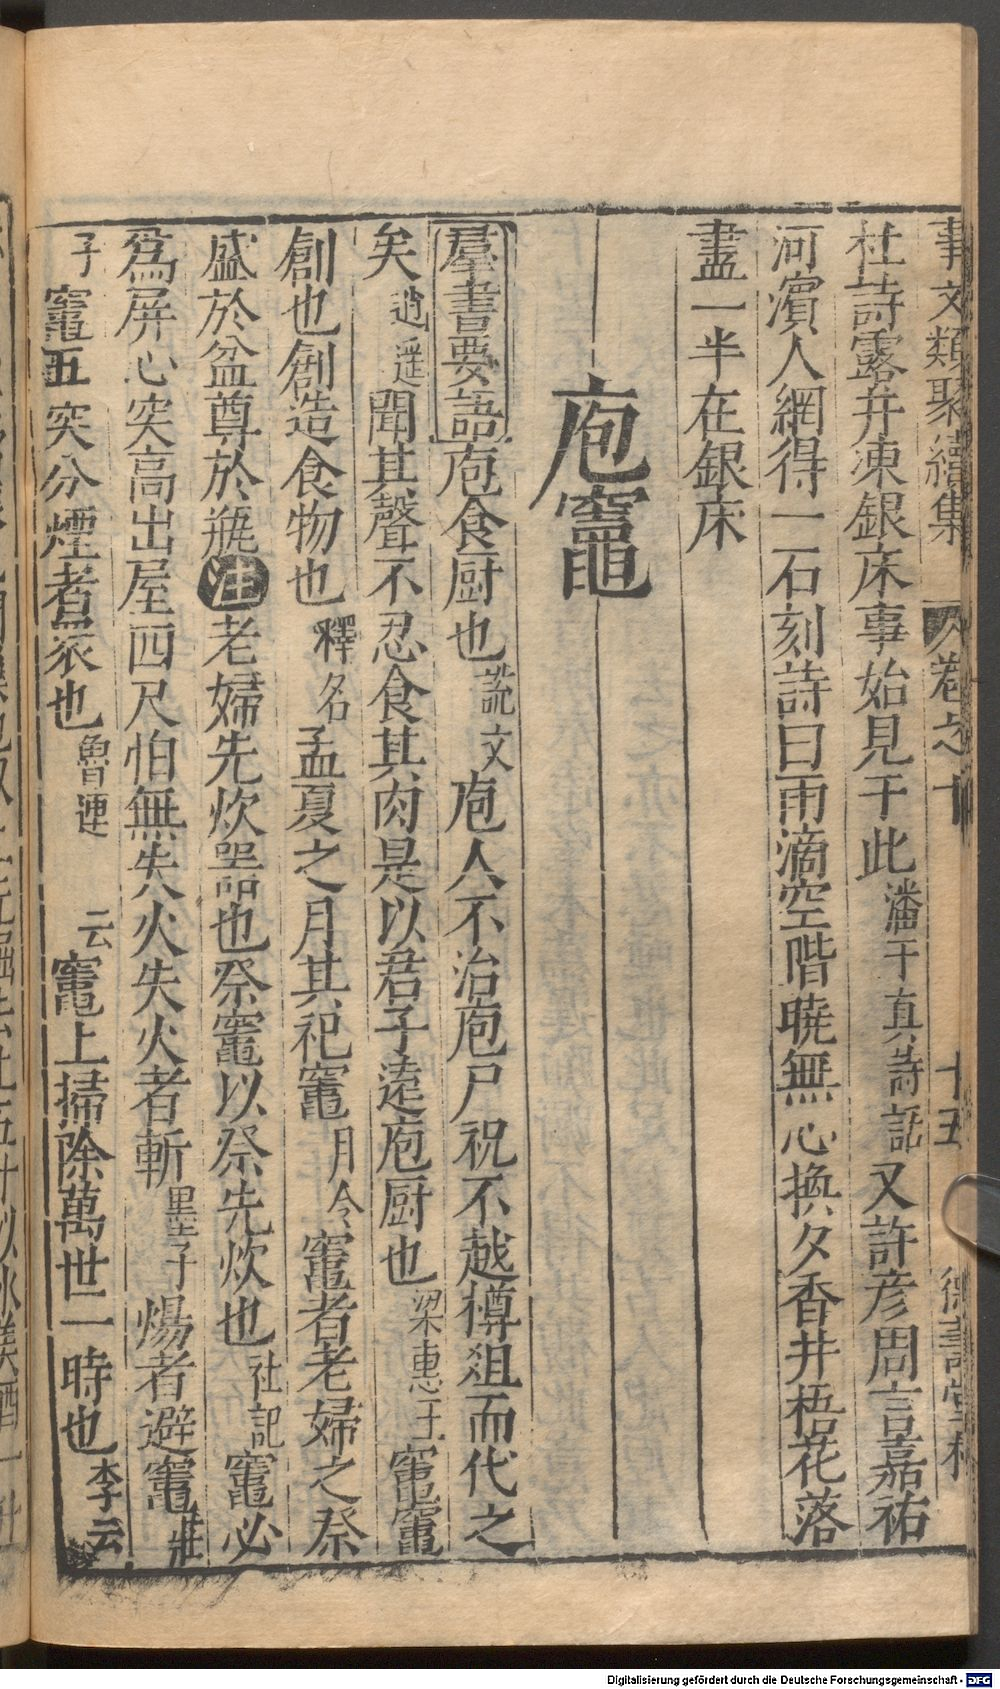 事文類聚續集 卷之十 十五 德壽堂梓
杜詩露井凍銀床事始見于此潘子真詩話又許彦周言嘉祐
河濱人網得一石刻詩曰雨滴空階曉無心換夕香井梧花落
盡一半在銀床
庖竈
羣書要語庖食厨也説文庖人不治庖尸祝不越樽俎而代之
矣逍遥聞其聲不忍食其肉是以君子逺庖厨也梁惠王竈竈
創也創造食物也釋名孟夏之月其祀竈月令竈者老婦之祭
盛於盆尊於瓶注老婦先炊器也祭竈以祭先炊也社記竈必
爲屏心突高出屋四尺怕無失火失火者斬墨子煬者避竈莊
子竈五突分煙者衆也魯連云竈上掃除萬世一時也李云
Digitalisierung gefördert durch die Deutsche Forschungsgemeinschaft - DFG